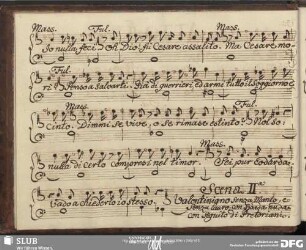 Mass. Ful. Mass.
Io nulla feci. Oh Dio! fù Cesare assalito. Ma Cesare mo-
Ful.
rì? Penso a salvarti. Già di guerrieri, e d'armi tutto il soggiorno è
Mass. Ful.
cinto. Dimmi se vive, o se rimase estinto? Nol so;
nulla di certo compresi nel timor. Sei pur codardo:
Vado a chiederlo io stesso. Scena II.a
Valentiniano senza Manto, e
senza Lauro, con spada nuda,
con seguito di Pretoriani.
SLUB
DFG